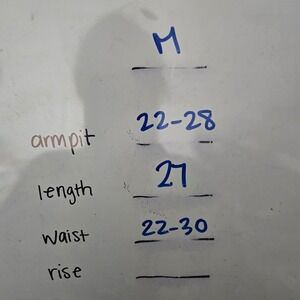 M
armpit 22-28
length 27
waist 22-30
rise